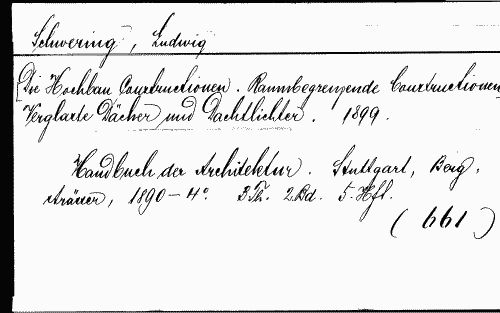 Schwering, Ludwig
[Die Hochbau Constructionen. Raumbegrenzende Constructionen
Verglaste Dächer und Dachtlichter. 1899.
Handbuch der Architektur. Stuttgart, Berg,
strässer, 1890 - 4°. 3 Th. 2 Bd. 5. Hft.
(661)